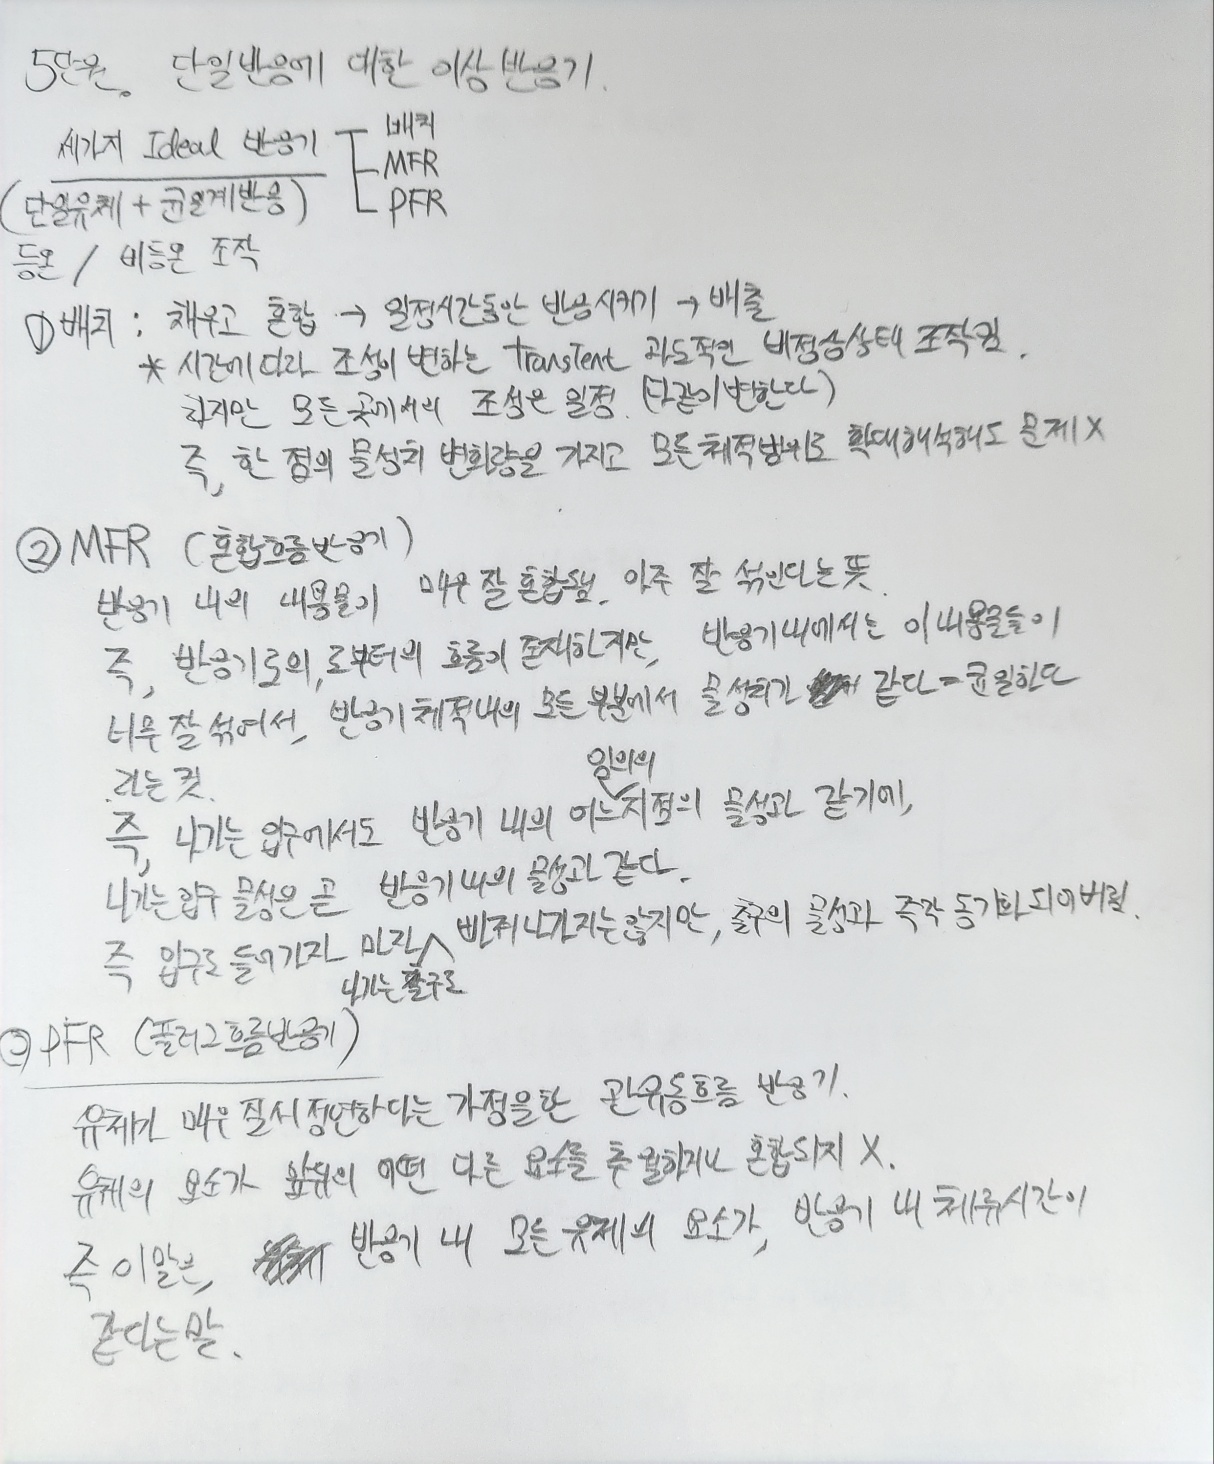 5단원. 단일반응에 대한 이상반응기.
세가지 Ideal 반응기
배치
MFR
PFR
(단일유체 + 균일계반응)
등온 / 비등온 조작
① 배치 : 채우고 혼합 → 일정시간동안 반응시키기 → 배출
* 시간에 따라 조성이 변하는 transient 과도적인 비정상상태 조작임.
하지만 모든 곳에서의 조성은 일정. (다같이 변한다)
즉, 한 점의 물성치 변화량을 가지고 모든 체적범위로 확대해석해도 문제 X
② MFR (혼합흐름반응기)
반응기 내의 내용물이 매우 잘 혼합됨. 아주 잘 섞인다는 뜻.
즉, 반응기로의, 로부터의 흐름이 존재하지만, 반응기내에서는 이 내용물들이
너무 잘 섞여서, 반응기 체적내의 모든 부분에서 물성치가 같다 = 균일한다
라는 것.
즉, 나가는 입구에서도 반응기 내의 임의의 어느지점의 물성과 같기에,
나가는 입구 물성은 곧 반응기 내의 물성과 같다.
즉 입구로 들어가자 마자 나가는 출구로 빠져나가지는 않지만, 출구의 물성과 즉각 동기화 되어버림.
③ PFR (플러그흐름반응기)
유체가 매우 질서정연하다는 가정을한 관유동흐름 반응기.
유체의 요소가 앞뒤의 어떤 다른 요소를 추월하거나 혼합되지 X.
즉 이 말은, 반응기 내 모든 유체의 요소가, 반응기 내 체류시간이
같다는 말.